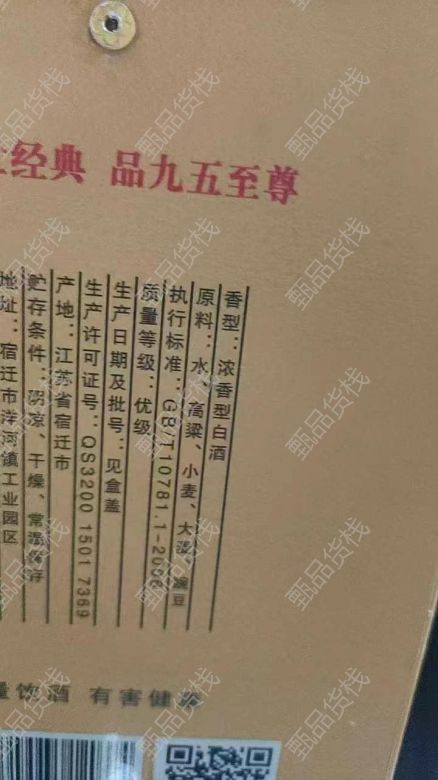 经典 品九五至尊
香型：浓香型白酒
原料：水、高粱、小麦、大麦、豌豆
执行标准：GB/T10781.1-2006
质量等级：优级
生产日期及批号：见盒盖
生产许可证号：QS3200 1501 7369
产地：江苏省宿迁市
贮存条件：阴凉、干燥、常温保存
地址：宿迁市洋河镇工业园区
量饮酒 有害健康
甄品货栈